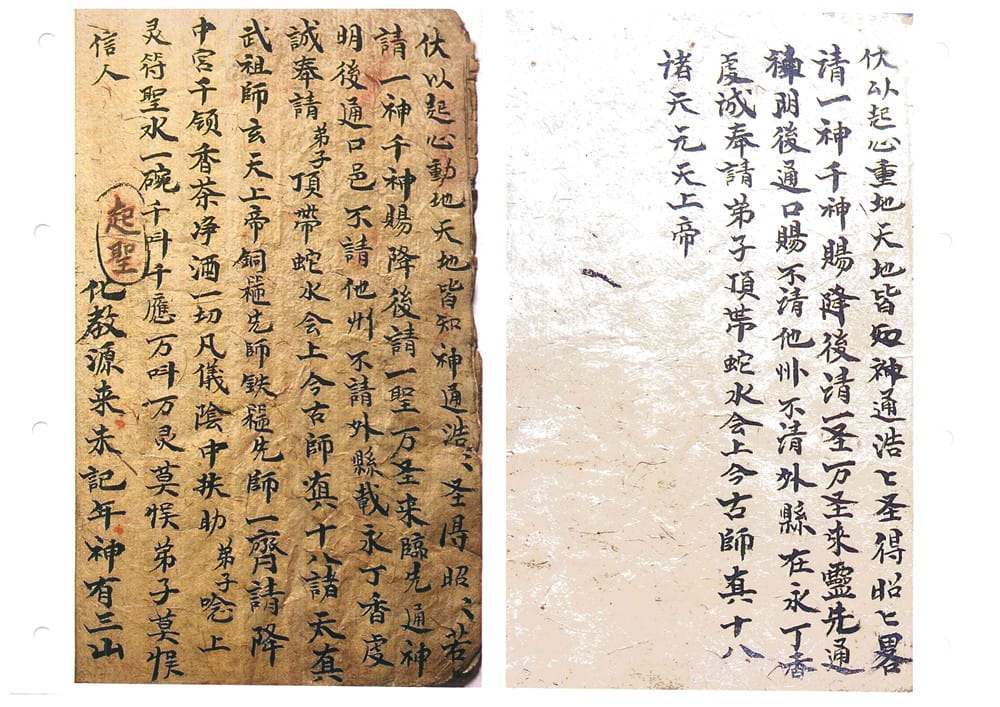 伏以起心動地天地皆知神通浩〻圣得昭〻若
請一神千神賜降後請一聖万圣来臨先通神
明後通口邑不請他州不請外縣載永丁香虔
誠奉請弟子頂帶蛇水会上今古師真十八諸天真
武祖師玄天上帝銅先師鉄先師一齊請降
中宫千领香茶净酒一切凡儀陰中扶助弟子唸上
灵符聖水一碗千呌千應万呌万灵莫悮弟子莫悮
信人
起聖
化教源来未記年神有三山
伏以起心重地天地皆知神通浩〻圣得昭〻畧
請一神千神賜降後清一圣万圣来靈先通
神明後通口賜不清他州不清外縣在永丁香
虔诚奉請弟子頂帶蛇水会上今古師真十八
诸天元天上帝